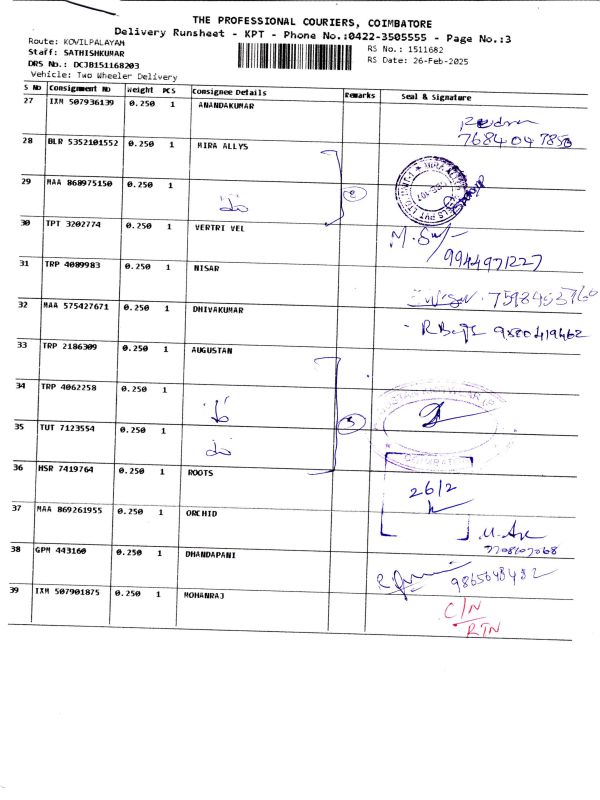 THE PROFESSIONAL COURIERS, COIMBATORE
Delivery Runsheet - KPT - Phone No.:0422-3505555 - Page No.:3
Route: KOVILPALAYAM
RS No.: 1511682
Staff: SATHISHKUMAR
RS Date: 26-Feb-2025
DRS No.: DCJB151168203
Vehicle: Two Wheeler Delivery
S No Consignment No Weight PCS Consignee Details Remarks Seal & Signature
27 IXM 507936139 0.250 1 ANANDAKUMAR
28 BLR 5352101552 0.250 1 MIRA ALLYS
29 MAA 868975150 0.250 1 do 2
30 TPT 3202774 0.250 1 VERTRI VEL
9944971227
31 TRP 4089983 0.250 1 NISAR
32 MAA 575427671 0.250 1 DHIVAKUMAR
9880419462
33 TRP 2186309 0.250 1 AUGUSTAN
34 TRP 4062258 0.250 1 do
35 TUT 7123554 0.250 1 do 3
36 HSR 7419764 0.250 1 ROOTS
26/2
37 MAA 869261955 0.250 1 ORCHID
38 GPM 443160 0.250 1 DHANDAPANI
39 IXM 507901875 0.250 1 MOHANRAJ
C/N
RTN